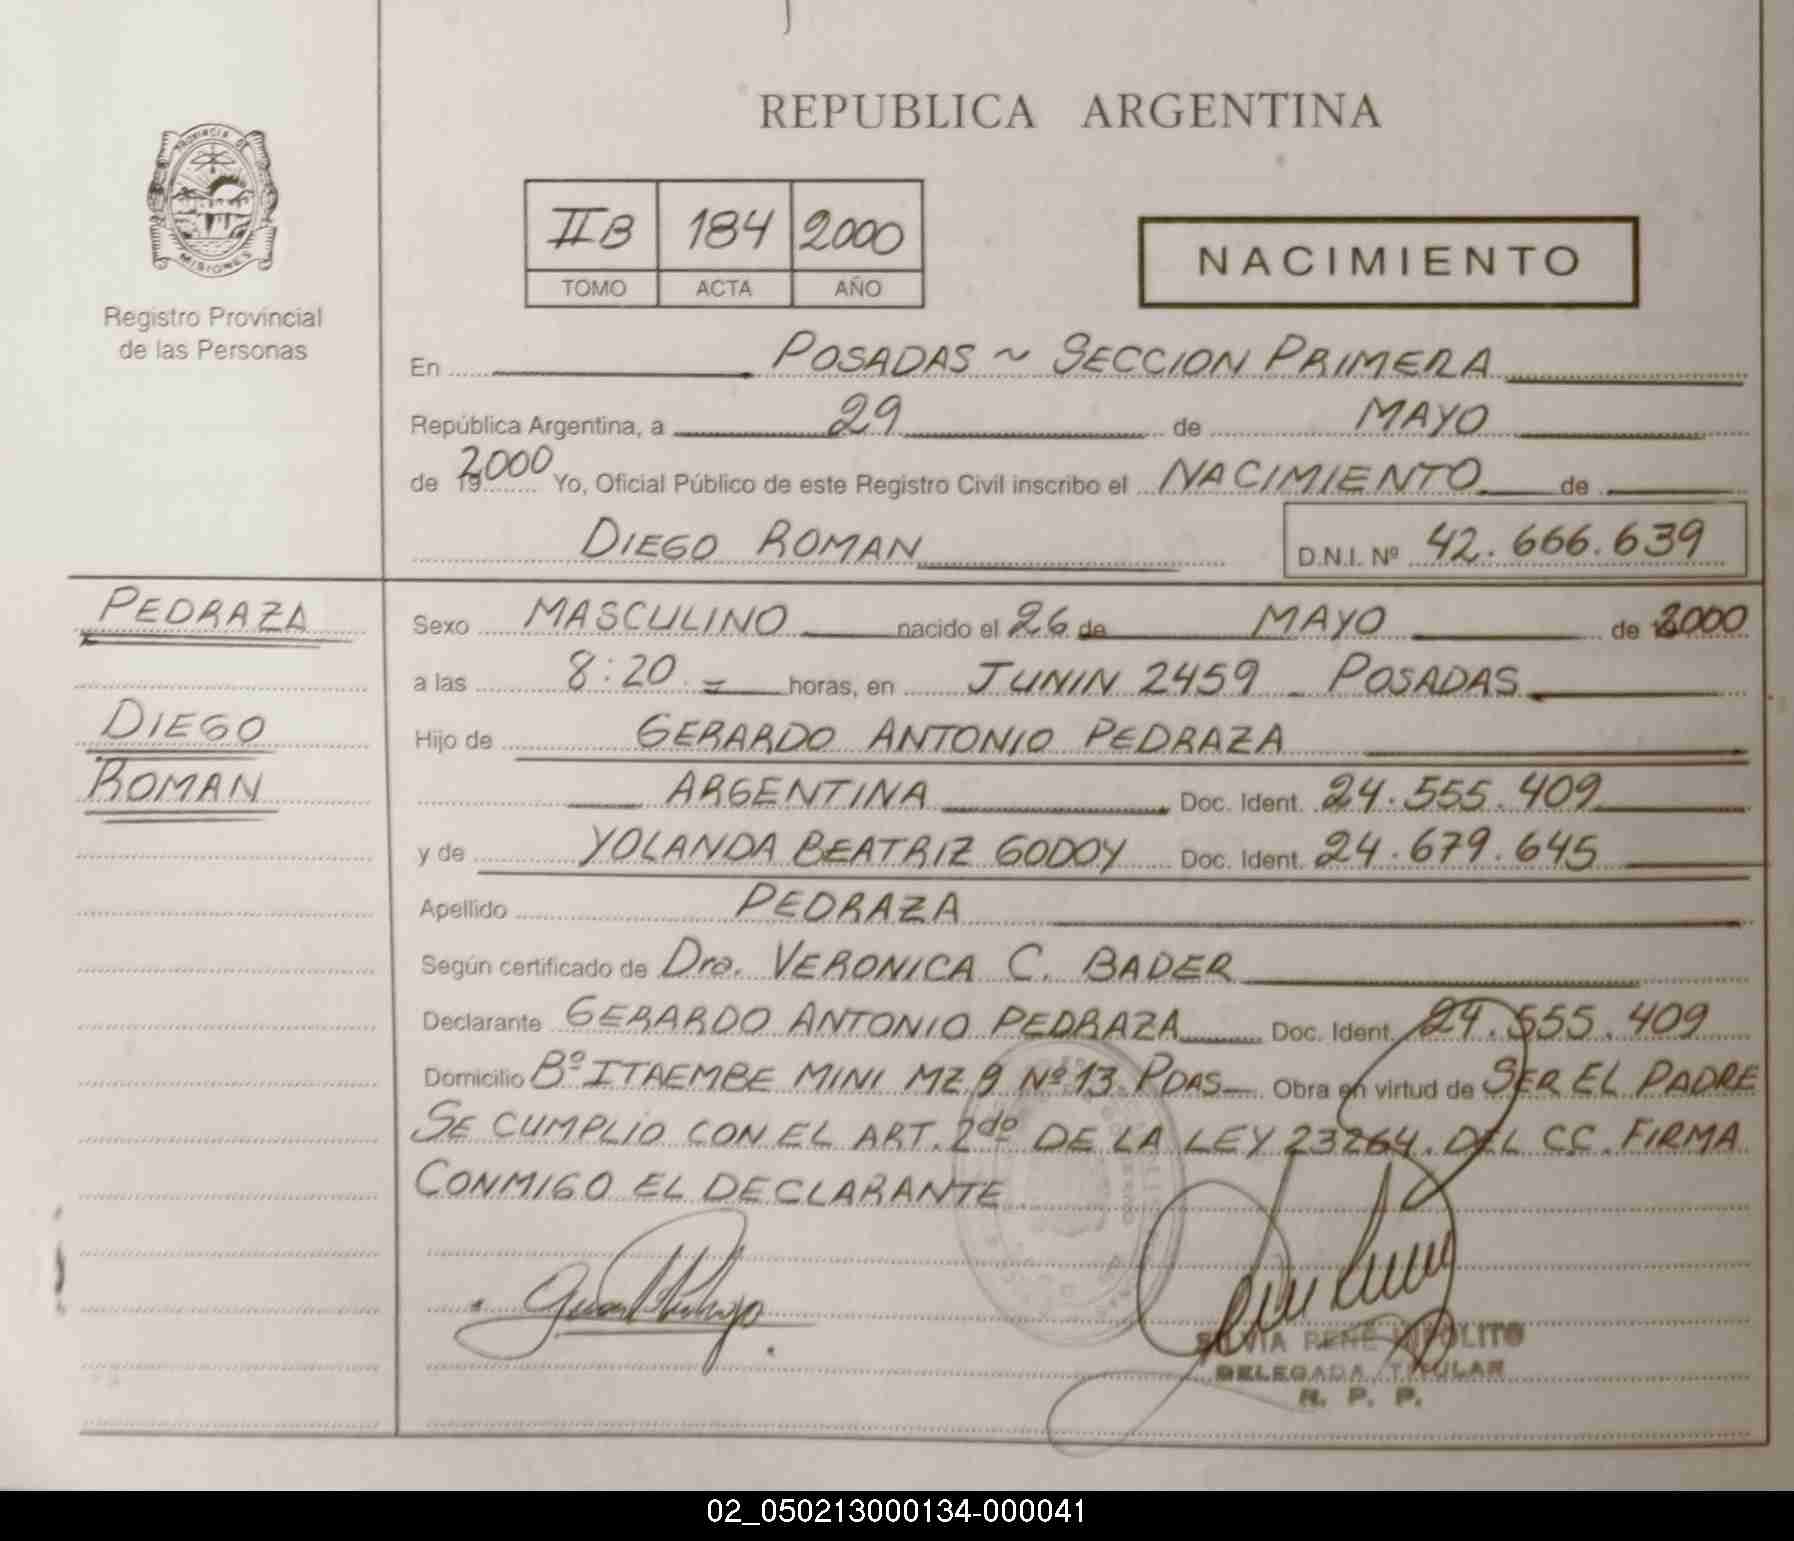 PROVINCIA DE
MISIONES
Registro Provincial
de las Personas
REPUBLICA ARGENTINA
IIB 184 2000
TOMO ACTA AÑO
NACIMIENTO
En POSADAS ~ SECCION PRIMERA
República Argentina, a 29 de MAYO
de 2000 Yo, Oficial Público de este Registro Civil inscribo el NACIMIENTO de
DIEGO ROMAN D.N.I. Nº 42.666.639
PEDRAZA
DIEGO
ROMAN
Sexo MASCULINO nacido el 26 de MAYO de 2000
a las 8:20.- horas, en JUNIN 2459 - POSADAS
Hijo de GERARDO ANTONIO PEDRAZA
ARGENTINA Doc. Ident. 24.555.409
y de YOLANDA BEATRIZ GODOY Doc. Ident. 24.679.645
Apellido PEDRAZA
Según certificado de Dra. VERONICA C. BADER
Declarante GERARDO ANTONIO PEDRAZA Doc. Ident. 24.555.409
Domicilio Bº ITAEMBE MINI MZ 9 Nº 13 PDAS- Obra en virtud de SER EL PADRE
SE CUMPLIO CON EL ART. 2do DE LA LEY 23264. DEL CC. FIRMA
CONMIGO EL DECLARANTE
SILVIA RENÉ HIPOLITO
DELEGADA TITULAR
R. P. P.
02_050213000134-000041